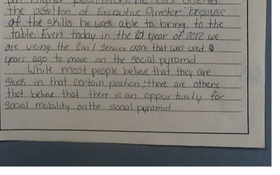 the position of Executive Director because
of the skills he was able to bring to the
table. Even today in the year of 2012 we
are using the Civil Service exam that was used
years ago to move on the social pyramid
While most people believe that they are
stuck in that certain position; there are others
that believe that there is an oppurtunity for
social mobility on the social pyramid.